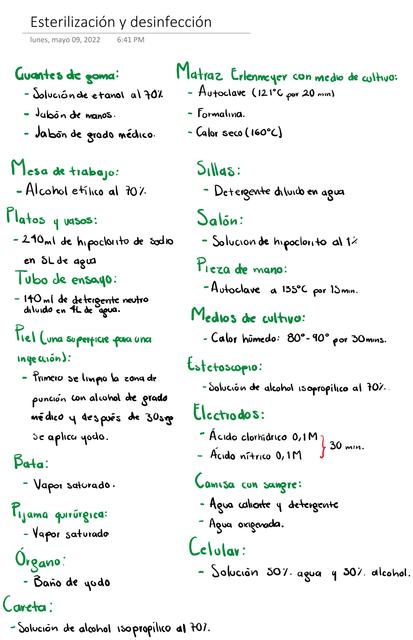 Esterilización y desinfección
lunes, mayo 09, 2022 6:41 PM
Guantes de goma:
- Solución de etanol al 70%
- Jabón de manos.
- Jabón de grado médico.
Mesa de trabajo:
- Alcohol etílico al 70%.
Platos y vasos:
- 240ml de hipoclorito de sodio
en 5L de agua
Tubo de ensayo:
- 140 ml de detergente neutro
diluido en 4L de agua.
Piel (una superficie para una
inyección):
- Primero se limpia la zona de
punción con alcohol de grado
médico y después de 30seg
se aplica yodo.
Bata:
- Vapor saturado.
Pijama quirúrgica:
- Vapor saturado
Órgano:
- Baño de yodo
Careta:
- Solución de alcohol isopropílico al 70%.
Matraz Erlenmeyer con medio de cultivo:
- Autoclave (121°C por 20 min)
- Formalina.
- Calor seco (160°C)
Sillas:
- Detergente diluido en agua
Salón:
- Solucion de hipoclorito al 1%
Pieza de mano:
- Autoclave a 135°C por 15min.
Medios de cultivo:
- Calor húmedo: 80°-90° por 30mins.
Estetoscopio:
- Solución de alcohol isopropílico al 70%.
Electrodos:
- Ácido clorhídrico 0,1M
- Ácido nítrico 0,1M } 30 min.
Camisa con sangre:
- Agua caliente y detergente
- Agua oxigenada.
Celular:
- Solución 50% agua y 50% alcohol.